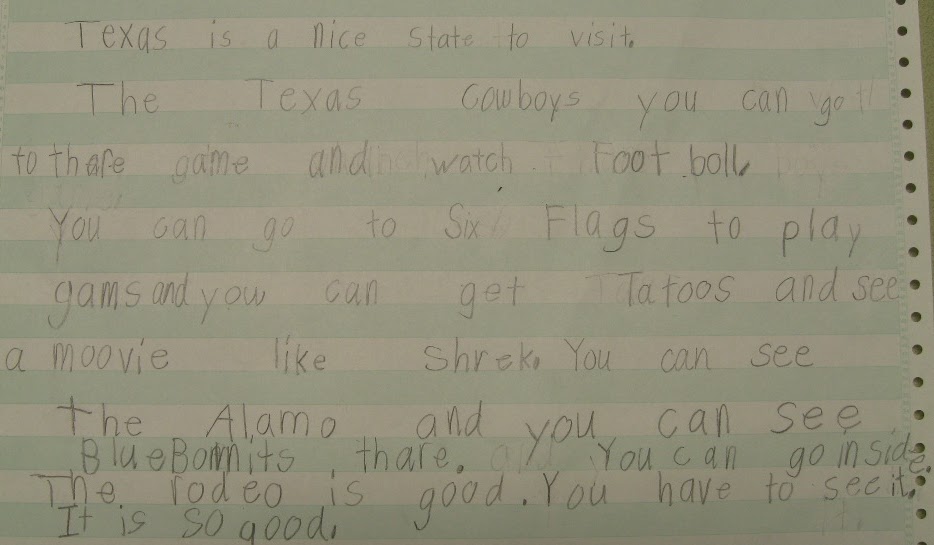 Texas is a nice state to visit.
The Texas Cowboys you can go
to thare game and watch Foot boll.
You can go to Six Flags to play
gams and yow can get Tatoos and see
a moovie like Shrek. You can see
the Alamo and you can see
BlueBonnits thare. You can go inside.
The rodeo is good. You have to see it.
It is so good.